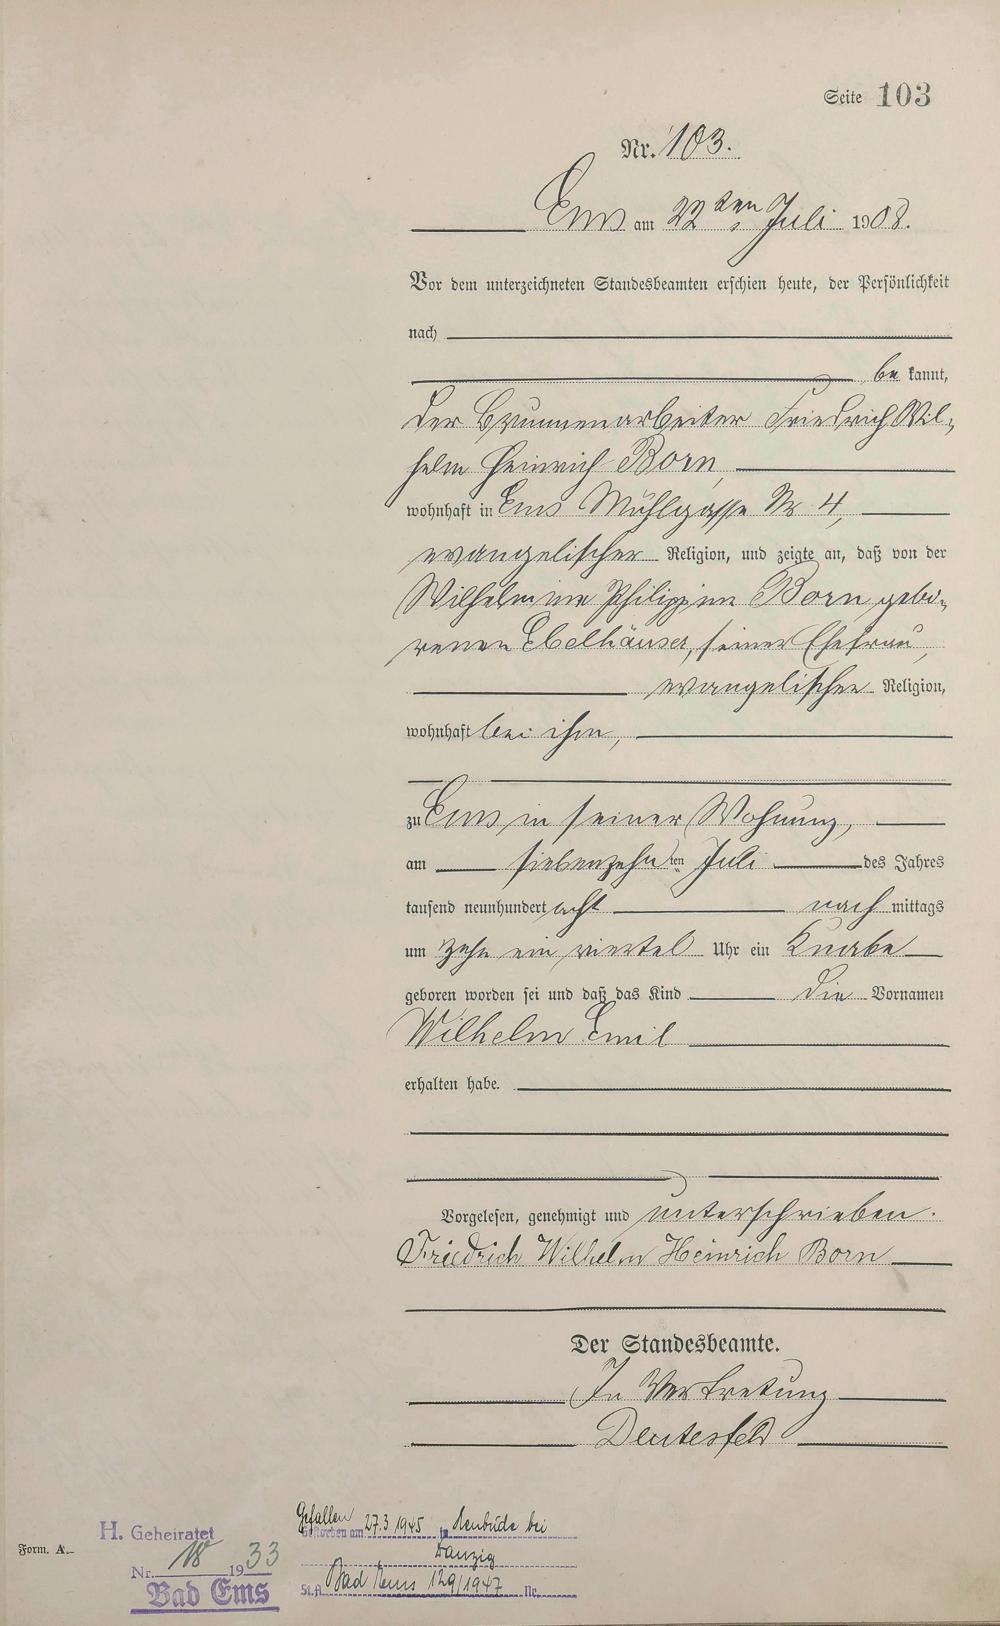 Seite 103
Nr. 103.
Ems am 22ten Juli 1908.
Vor dem unterzeichneten Standesbeamten erschien heute, der Persönlichkeit
nach
be kannt,
der Brunnenarbeiter Friedrich Wil-
helm Heinrich Born,
wohnhaft in Ems Mühlgasse Nr 4,
evangelischer Religion, und zeigte an, daß von der
Wilhelmine Philippine Born, gebo-
renen Ebelhäuser, seiner Ehefrau,
evangelischer Religion,
wohnhaft bei ihm,
zu Ems in seiner Wohnung,
am siebenzehnten Juli des Jahres
tausend neunhundert acht nach mittags
um zehn ein viertel Uhr ein Knabe
geboren worden sei und daß das Kind die Vornamen
Wilhelm Emil
erhalten habe.
Vorgelesen, genehmigt und unterschrieben.
Friedrich Wilhelm Heinrich Born
Der Standesbeamte.
In Vertretung
Deutesfeld
Form. A.
H. Geheiratet
Nr. 18 1933
Bad Ems
Gefallen
Gestorben am 27.3 1945 in Heubude bei
Danzig
St.A. Bad Ems 129/1947 Nr.